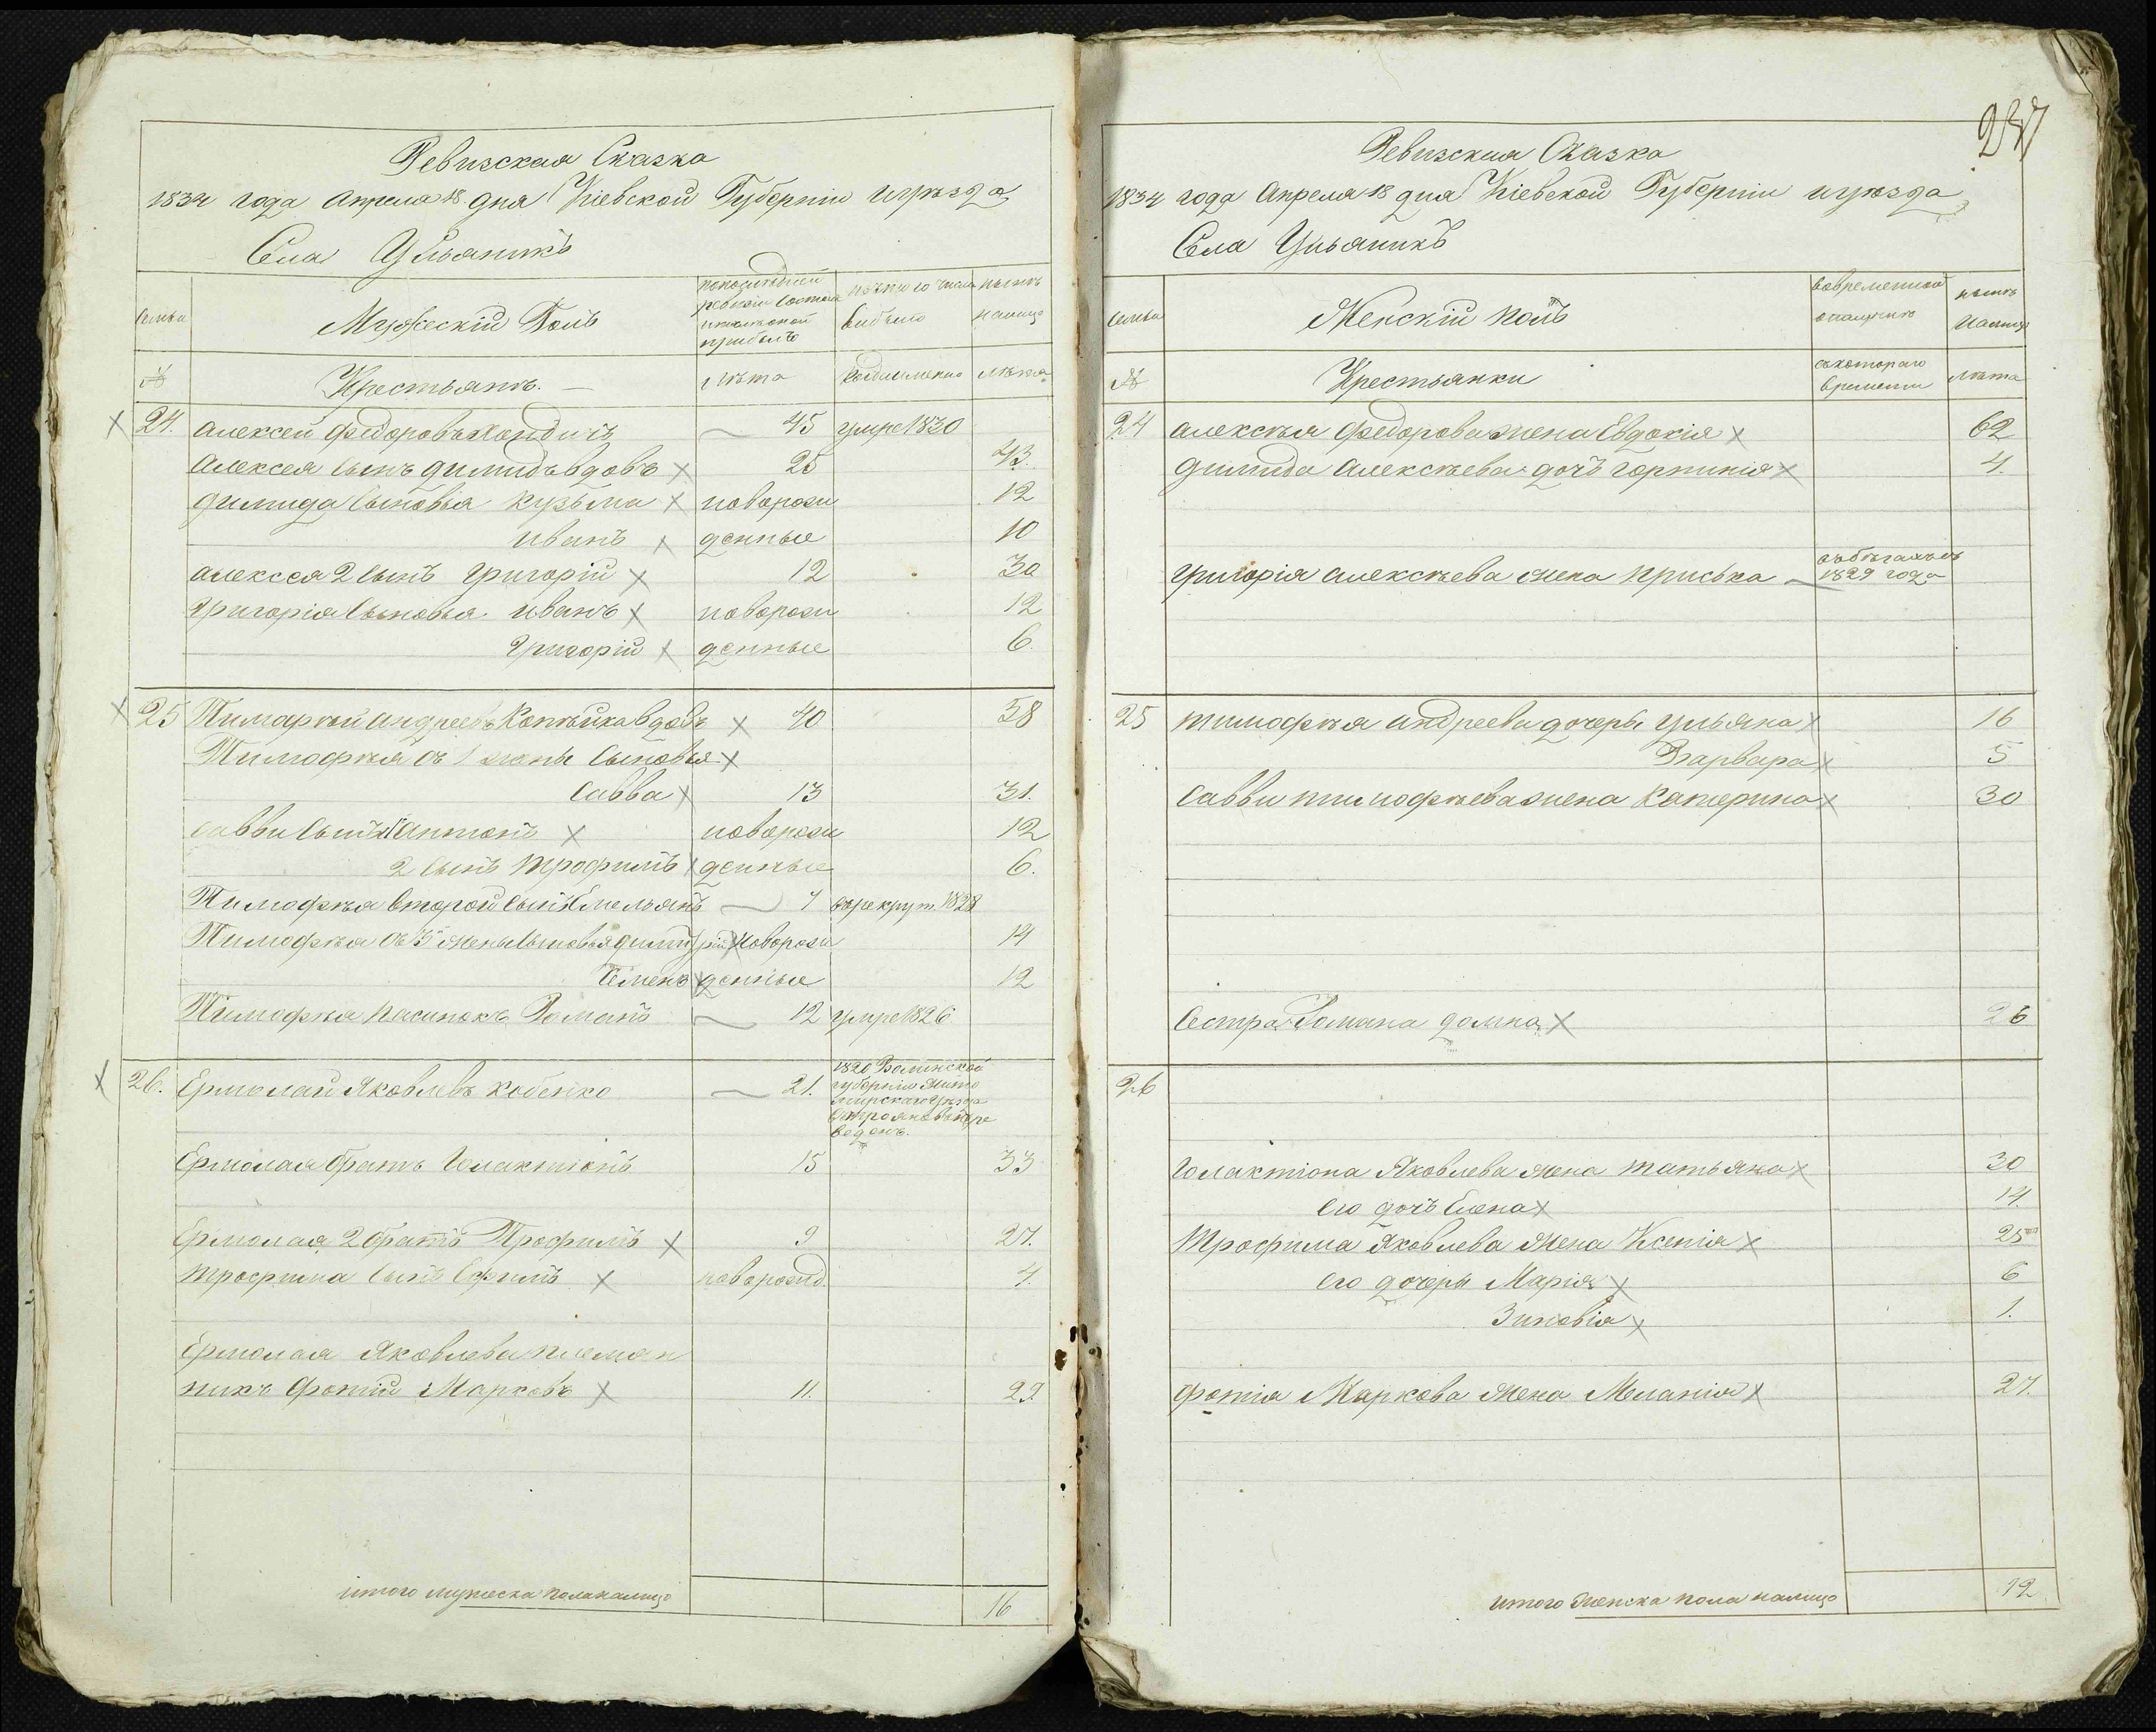 Ревизская Сказка
1834 года Апреля 18 дня Кіевской Губерніи и уѣзда
Села Ульяникъ
семьи
Мужескій Полъ
по последней ревизіи состояло и после оной прибыло
изъ того числа выбыло
нынѣ на лицо
№
Крестьянѣ.
лѣта
лѣта
24. Алексей Федоровъ 45 умре 1830
Алексея сынъ Димидъ вдовъ 25 43.
Димида сыновія Кузьма новорож 12
Иванъ денные 10
Алексея 2 сынъ Григорій 12 30
Григорія сыновья Иванъ новорож 12
Григорій денные 6.
25 Тимофѣй Андреевъ Копѣйка вдовъ 40 58
Тимофѣя отъ 1 жены сыновья
Савва 13 31.
Саввы сынъ 1 Антонъ новорож 12
2 сынъ Трофимъ денные 6.
Тимофѣя второй сынъ Емельянъ 7 въ рекрут. 1828
Тимофѣя отъ 3 жены сыновья Димитрій новорож 14
Семенъ денные 12
Тимофѣя пасинокъ Романъ 12 умре 1826
26. Ермолай Яковлевъ Кобенко 21. 1820 Волинской
губерніи Жито
мирского уѣзда
пере
веденъ.
Ермолая братъ Голактіонъ 15 33
Ермолая 2 братъ Трофимъ 9 27.
Трофима сынъ Ефимъ новорожд. 4.
Ермолая Яковлева племян
никъ Фотій Марковъ 11. 29
итого мужеска пола налицо 16
247
Ревизская Сказка
1834 года Апреля 18 дня Кіевской Губерніи и уѣзда
Села Ульяникъ
семьи
Женскій полъ
во временной отлучкѣ
нынѣ на лицо
№
Крестьянки
съ котораго времени
лѣта
24 Алексѣя Федорова жена Евдокія 62
Димида Алексѣева дочь Горпинія 4.
Григорія Алексѣева жена Приська въ бѣгахъ съ
1829 года
25 Тимофѣя Андреева дочеры Ульяна 16
Варвара 5
Саввы Тимофѣева жена Катерина 30
Сестра Романа Домна 26
26
Голактіона Яковлева жена Татьяна 30
его дочь Елена 14.
Трофима Яковлева жена Ксенія 25
его дочеры Марія 6
Зиновія 1.
Фотія Маркова жена Меланія 27.
итого женска пола налицо 12